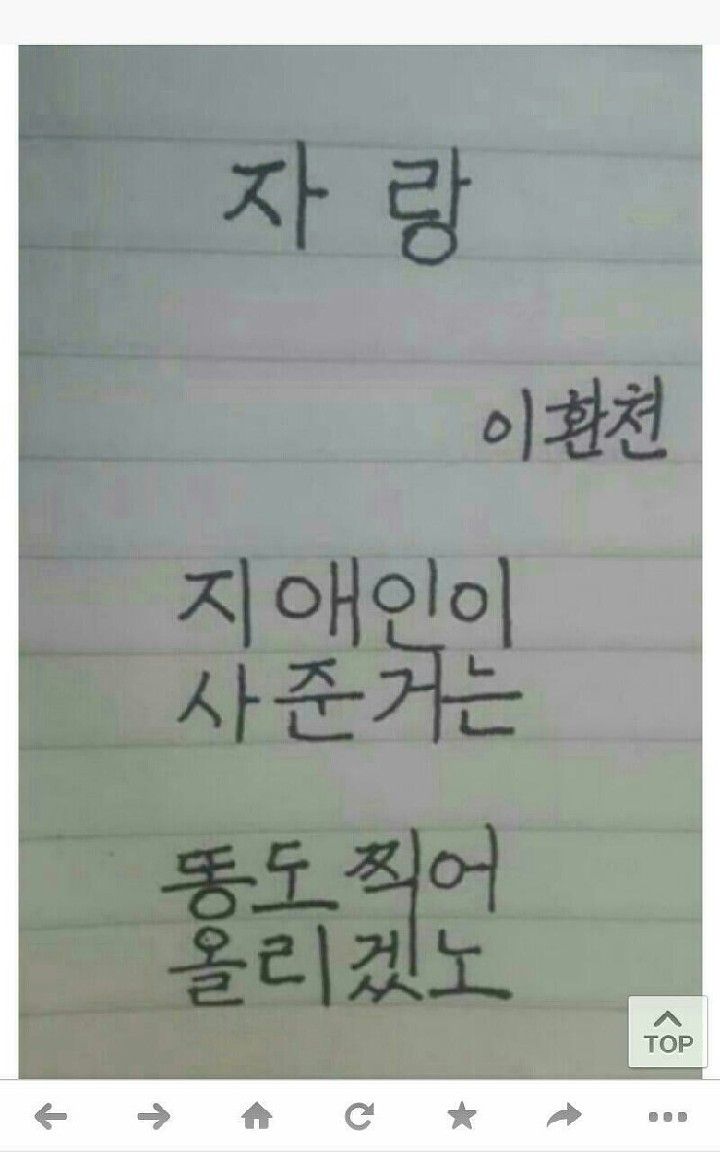 자랑
이환천
지 애인이
사준거는
똥도 찍어
올리겠노
TOP